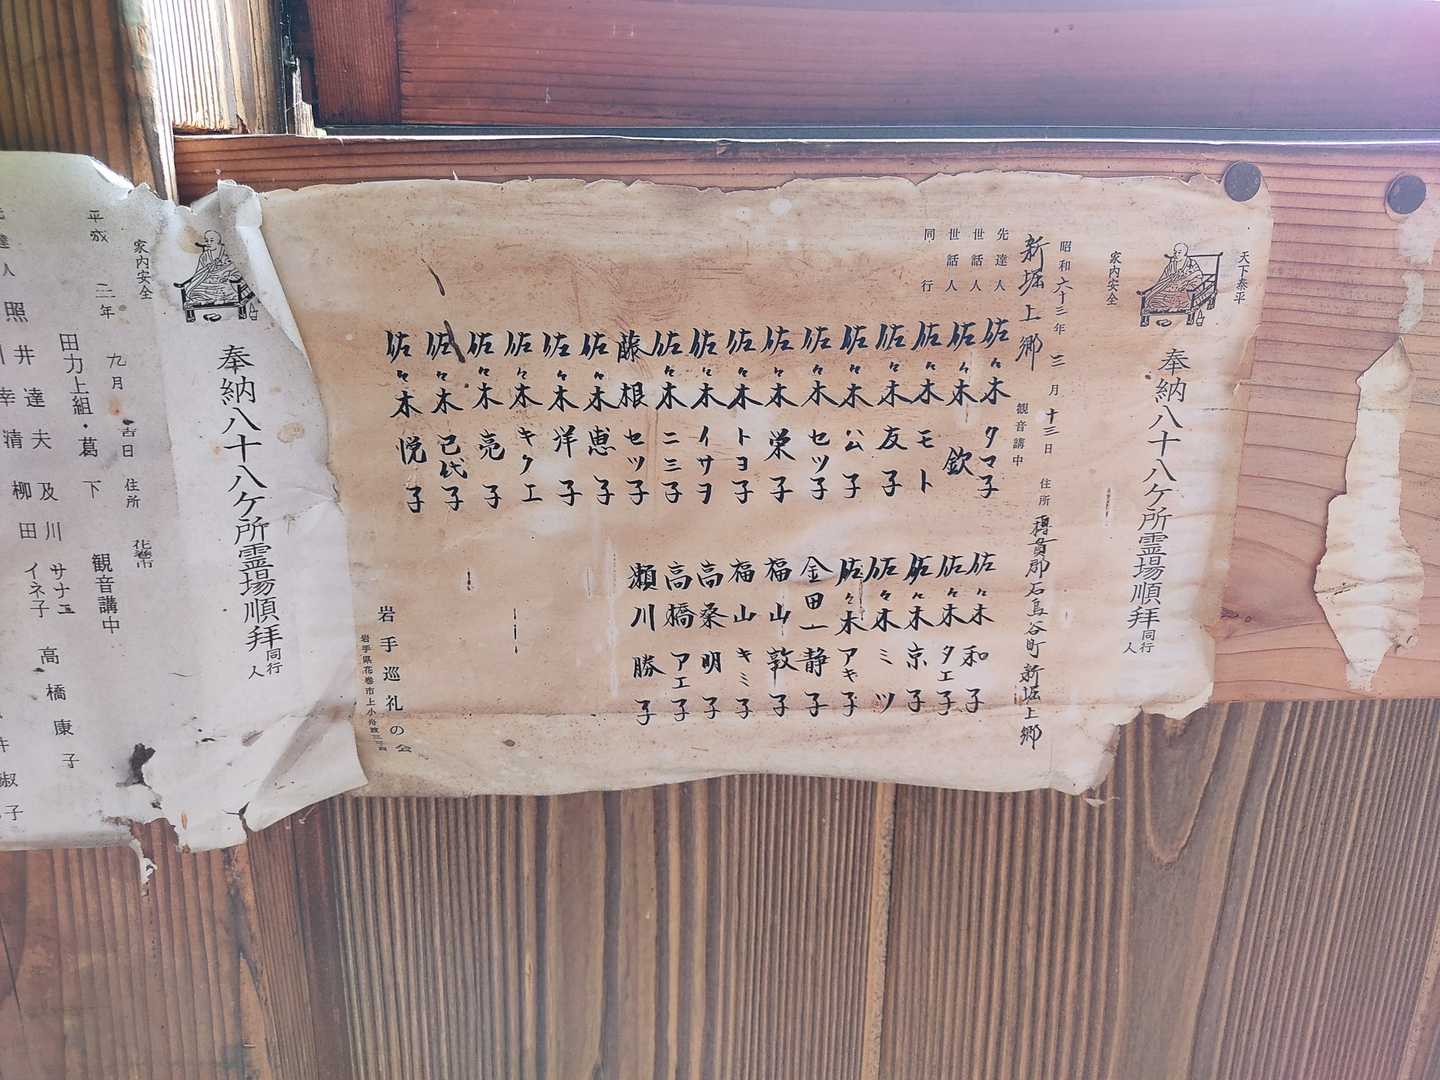 天下泰平
奉納八十八ケ所霊場順拝同行 人
家内安全
昭和六十三年三月十三日 住所 稗貫郡石鳥谷町新堀上郷
新堀上郷 観音講中
先達人
世話人
世話人
同行
佐々木タマ子
佐々木 欽
佐々木モト
佐々木友子
佐々木公子
佐々木セツ子
佐々木栄子
佐々木トヨ子
佐々木イサヲ
佐々木ニ三子
藤根セツ子
佐々木恵子
佐々木洋子
佐々木キクエ
佐々木亮子
佐々木己代子
佐々木悦子
佐々木和子
佐々木タエ子
佐々木京子
佐々木ミツ
佐々木アキ子
金田一静子
福山敦子
福山キミ子
高桑明子
高橋アエ子
瀬川勝子
岩手巡礼の会
岩手県花巻市上小舟渡
奉納八十八ケ所霊場順拝同行 人
家内安全
平成二年九月吉日 住所 花巻市
田力上組・葛下 観音講中
照井達夫
及川サナエ
幸清
柳田イネ子
高橋康子